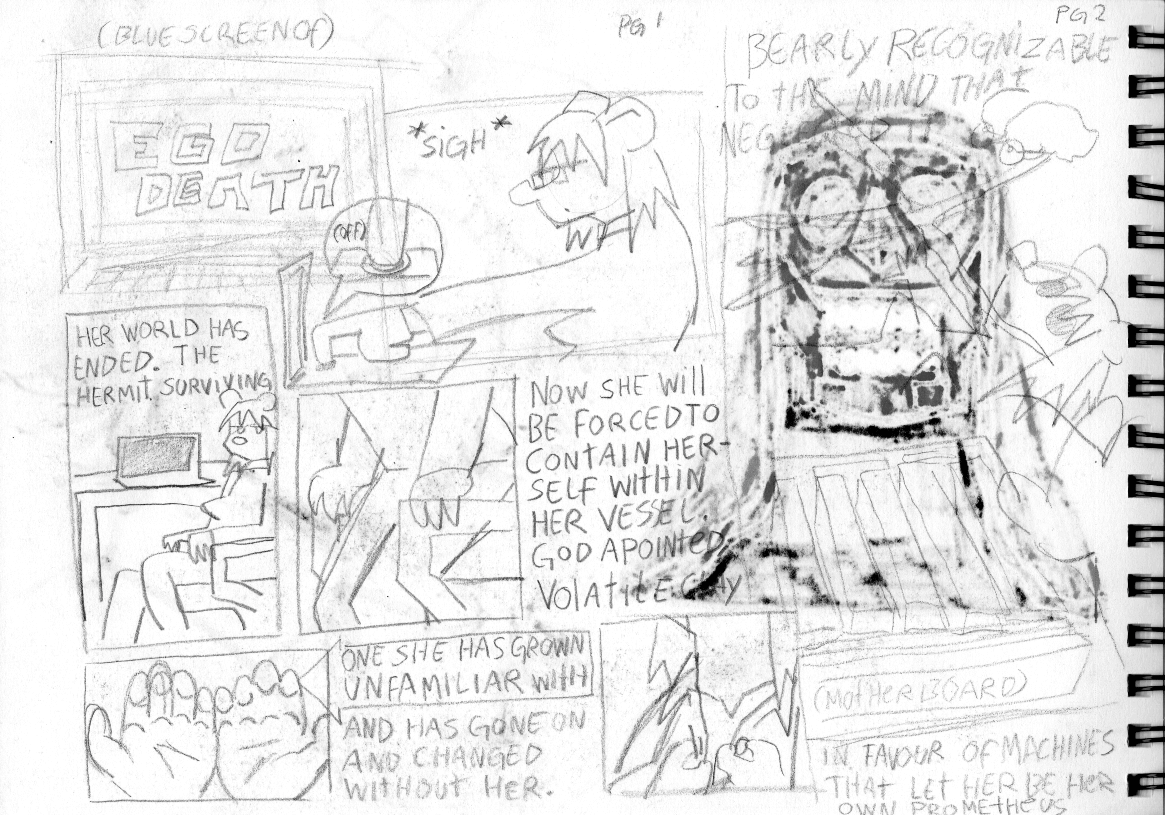 (BLUE SCREEN OF)
EGO
DEATH
PG 1
*SIGH*
(OFF)
HER WORLD HAS
ENDED. THE
HERMIT SURVIVING
NOW SHE WILL
BE FORCED TO
CONTAIN HER-
SELF WITHIN
HER VESSEL.
GOD APOINTED
VOLATILE CLAY
ONE SHE HAS GROWN
UNFAMILIAR WITH
AND HAS GONE ON
AND CHANGED
WITHOUT HER.
PG 2
BEARLY RECOGNIZABLE
TO THE MIND THAT
(MOTHERBOARD)
IN FAVOUR OF MACHINES
THAT LET HER BE HER
OWN PROMETHEUS